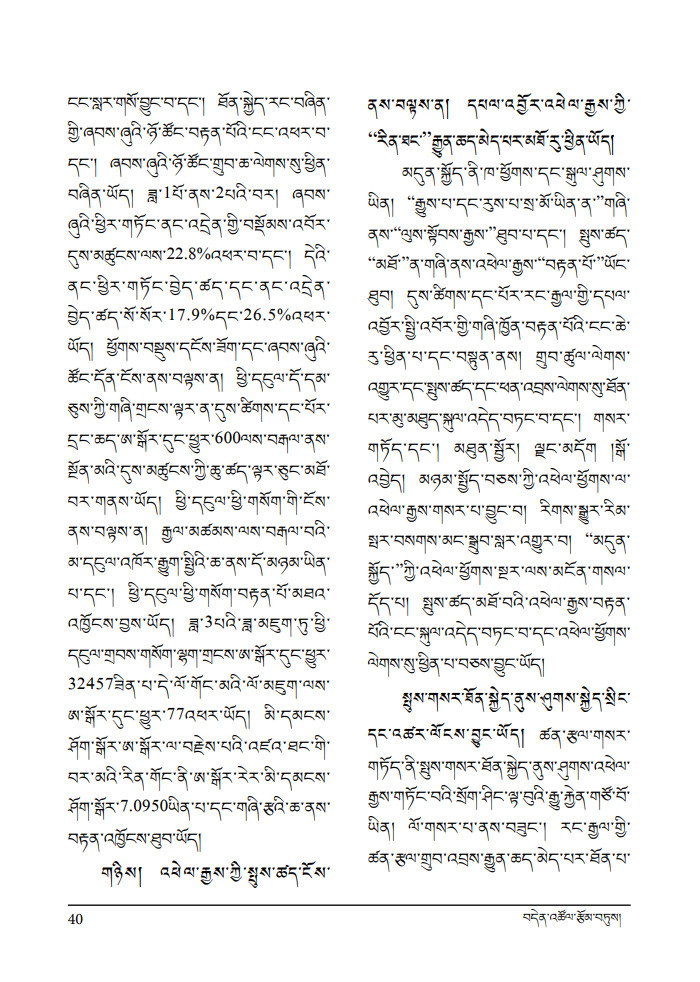 ངང་སླར་གསོ་བྱུང་བ་དང་། ཐོན་སྐྱེད་རང་བཞིན་
གྱི་ཞབས་ཞུའི་ཉོ་ཚོང་བརྟན་པོའི་ངང་འཕར་བ་
དང་། ཞབས་ཞུའི་ཉོ་ཚོང་གྲུབ་ཆ་ལེགས་སུ་ཕྱིན་
བཞིན་ཡོད། ཟླ་1པོ་ནས་2པའི་བར། ཞབས་
ཞུའི་ཕྱིར་གཏོང་ནང་འདྲེན་གྱི་བསྡོམས་འབོར་
དུས་མཚུངས་ལས་22.8%འཕར་བ་དང་། དེའི་
ནང་ཕྱིར་གཏོང་བྱེད་ཚད་དང་ནང་འདྲེན་
བྱེད་ཚད་སོ་སོར་17.9%དང་26.5%འཕར་
ཡོད། ཕྱོགས་བསྡུས་དངོས་ཟོག་དང་ཞབས་ཞུའི་
ཚོང་དོན་ངོས་ནས་བལྟས་ན། ཕྱི་དངུལ་དོ་དམ་
ཅུས་ཀྱི་གཞི་གྲངས་ལྟར་ན་དུས་ཚིགས་དང་པོར་
དྲང་ཆད་ཨ་སྒོར་དུང་ཕྱུར་600ལས་བརྒལ་ནས་
སྔོན་མའི་དུས་མཚུངས་ཀྱི་ཆུ་ཚད་ལྟར་ཅུང་མཐོ་
བར་གནས་ཡོད། ཕྱི་དངུལ་ཕྱི་གསོག་གི་ངོས་
ནས་བལྟས་ན། རྒྱལ་མཚམས་ལས་བརྒལ་བའི་
མ་དངུལ་འཁོར་རྒྱུག་སྤྱིའི་ཆ་ནས་དོ་མཉམ་ཡིན་
པ་དང་། ཕྱི་དངུལ་ཕྱི་གསོག་བརྟན་པོ་མཐའ་
འཁྱོངས་བྱས་ཡོད། ཟླ་3པའི་ཟླ་མཇུག་ཏུ་ཕྱི་
དངུལ་གྲབས་གསོག་ལྷག་གྲངས་ཨ་སྒོར་དུང་ཕྱུར་
32457ཟིན་པ་དེ་ལོ་གོང་མའི་ལོ་མཇུག་ལས་
ཨ་སྒོར་དུང་ཕྱུར་77འཕར་ཡོད། མི་དམངས་
ཤོག་སྒོར་ཨ་སྒོར་ལ་བརྗེས་པའི་འཛའ་ཐང་གི་
བར་མའི་རིན་གོང་ནི་ཨ་སྒོར་རེར་མི་དམངས་
ཤོག་སྒོར་7.0950ཡིན་པ་དང་གཞི་རྩའི་ཆ་ནས་
བརྟན་འཁྱོངས་ཐུབ་ཡོད།
གཉིས། འཕེལ་རྒྱས་ཀྱི་སྤུས་ཚད་ངོས་
ནས་བལྟས་ན། དཔལ་འབྱོར་འཕེལ་རྒྱས་ཀྱི་
“རིན་ཐང་”རྒྱུན་ཆད་མེད་པར་མཐོ་རུ་ཕྱིན་ཡོད།
མདུན་སྐྱོད་ནི་ཁ་ཕྱོགས་དང་སྒུལ་ཤུགས་
ཡིན། “རྒྱུས་པ་དང་རུས་པ་སྲ་མོ་ཡིན་ན་”གཞི་
ནས་“ལུས་སྟོབས་རྒྱས་”ཐུབ་པ་དང་། སྤུས་ཚད་
“མཐོ་”ན་གཞི་ནས་འཕེལ་རྒྱས་“བརྟན་པོ་”ཡོང་
ཐུབ། དུས་ཚིགས་དང་པོར་རང་རྒྱལ་གྱི་དཔལ་
འབྱོར་སྤྱི་འབོར་གྱི་གཞི་ཁྱོན་བརྟན་པོའི་ངང་ཆེ་
རུ་ཕྱིན་པ་དང་བསྟུན་ནས། གྲུབ་ཚུལ་ལེགས་
འགྱུར་དང་སྤུས་ཚད་དང་ཕན་འབྲས་ལེགས་སུ་ཐོན་
པར་མུ་མཐུད་སྐུལ་འདེད་བཏང་བ་དང་། གསར་
གཏོད་དང་། མཐུན་སྦྱོར། ལྗང་མདོག །སྒོ་
འབྱེད། མཉམ་སྤྱོད་བཅས་ཀྱི་འཕེལ་ཕྱོགས་ལ་
འཕེལ་རྒྱས་གསར་པ་བྱུང་བ། རིགས་སྒྱུར་རིམ་
སྤར་བསགས་མང་སྒྲུབ་སླར་འགྱུར་བ། “མདུན་
སྐྱོད་”ཀྱི་འཕེལ་ཕྱོགས་སྔར་ལས་མངོན་གསལ་
དོད་པ། སྤུས་ཚད་མཐོ་བའི་འཕེལ་རྒྱས་བརྟན་
པོའི་ངང་སྐུལ་འདེད་བཏང་བ་དང་འཕེལ་ཕྱོགས་
ལེགས་སུ་ཕྱིན་པ་བཅས་བྱུང་ཡོད།
སྤུས་གསར་ཐོན་སྐྱེད་ནུས་ཤུགས་སྐྱེད་སྲིང་
དང་འཚར་ལོངས་བྱུང་ཡོད། ཚན་རྩལ་གསར་
གཏོད་ནི་སྤུས་གསར་ཐོན་སྐྱེད་ནུས་ཤུགས་འཕེལ་
རྒྱས་གཏོང་བའི་སྲོག་ཤིང་ལྟ་བུའི་རྒྱུ་རྐྱེན་གཙོ་བོ་
ཡིན། ལོ་གསར་པ་ནས་བཟུང་། རང་རྒྱལ་གྱི་
ཚན་རྩལ་གྲུབ་འབྲས་རྒྱུན་ཆད་མེད་པར་ཐོན་པ་
40
བདེན་འཚོལ་རྩོམ་བཏུས།